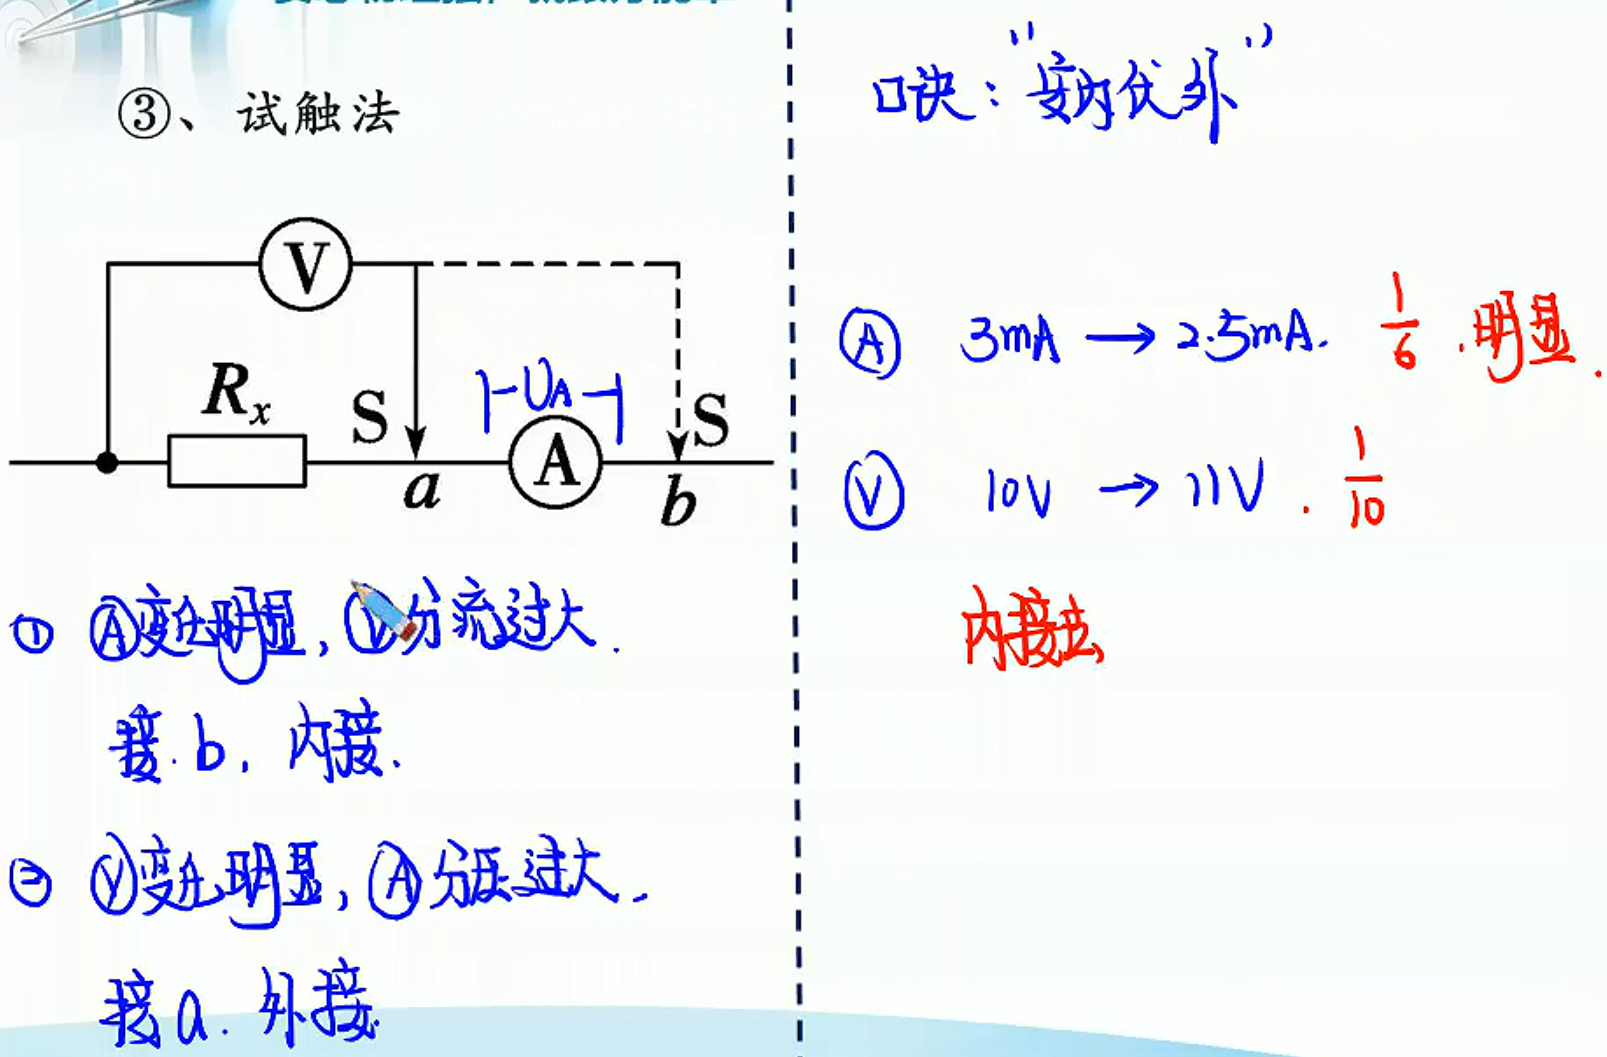 ③、试触法
V
Rx
S
|-UA-|
S
a
A
b
① Ⓐ变化明显，Ⓥ分流过大.
接.b，内接.
② Ⓥ变化明显，Ⓐ分压过大.
接a.外接.
口诀："安内伏外"
Ⓐ 3mA → 2.5mA. 1/6 .明显.
Ⓥ 10V → 11V . 1/10
内接法